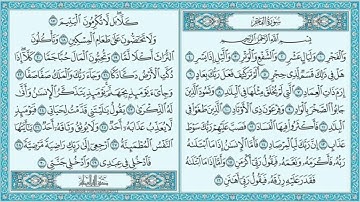 سُورَةُ الفَجْرِ
بِسْمِ اللَّهِ الرَّحْمَنِ الرَّحِيمِ
وَالْفَجْرِ ١ وَلَيَالٍ عَشْرٍ ٢ وَالشَّفْعِ وَالْوَتْرِ ٣ وَاللَّيْلِ إِذَا يَسْرِ ٤
هَلْ فِي ذَٰلِكَ قَسَمٌ لِّذِي حِجْرٍ ٥ أَلَمْ تَرَ كَيْفَ فَعَلَ رَبُّكَ بِعَادٍ ٦
إِرَمَ ذَاتِ الْعِمَادِ ٧ الَّتِي لَمْ يُخْلَقْ مِثْلُهَا فِي الْبِلَادِ ٨ وَثَمُودَ الَّذِينَ
جَابُوا الصَّخْرَ بِالْوَادِ ٩ وَفِرْعَوْنَ ذِي الْأَوْتَادِ ١٠ الَّذِينَ طَغَوْا فِي
الْبِلَادِ ١١ فَأَكْثَرُوا فِيهَا الْفَسَادَ ١٢ فَصَبَّ عَلَيْهِمْ رَبُّكَ سَوْطَ
عَذَابٍ ١٣ إِنَّ رَبَّكَ لَبِالْمِرْصَادِ ١٤ فَأَمَّا الْإِنسَانُ إِذَا مَا ابْتَلَاهُ
رَبُّهُ فَأَكْرَمَهُ وَنَعَّمَهُ فَيَقُولُ رَبِّي أَكْرَمَنِ ١٥ وَأَمَّا إِذَا مَا ابْتَلَاهُ
فَقَدَرَ عَلَيْهِ رِزْقَهُ فَيَقُولُ رَبِّي أَهَانَنِ ١٦
كَلَّا بَل لَّا تُكْرِمُونَ الْيَتِيمَ ١٧
وَلَا تَحَاضُّونَ عَلَىٰ طَعَامِ الْمِسْكِينِ ١٨ وَتَأْكُلُونَ
التُّرَاثَ أَكْلًا لَّمًّا ١٩ وَتُحِبُّونَ الْمَالَ حُبًّا جَمًّا ٢٠ كَلَّا إِذَا
دُكَّتِ الْأَرْضُ دَكًّا دَكًّا ٢١ وَجَاءَ رَبُّكَ وَالْمَلَكُ صَفًّا صَفًّا ٢٢
وَجِيءَ يَوْمَئِذٍ بِجَهَنَّمَ يَوْمَئِذٍ يَتَذَكَّرُ الْإِنسَانُ وَأَنَّىٰ
لَهُ الذِّكْرَىٰ ٢٣ يَقُولُ يَا لَيْتَنِي قَدَّمْتُ لِحَيَاتِي ٢٤ فَيَوْمَئِذٍ
لَّا يُعَذِّبُ عَذَابَهُ أَحَدٌ ٢٥ وَلَا يُوثِقُ وَثَاقَهُ أَحَدٌ ٢٦ يَا أَيَّتُهَا
النَّفْسُ الْمُطْمَئِنَّةُ ٢٧ ارْجِعِي إِلَىٰ رَبِّكِ رَاضِيَةً مَّرْضِيَّةً ٢٨
فَادْخُلِي فِي عِبَادِي ٢٩ وَادْخُلِي جَنَّتِي ٣٠